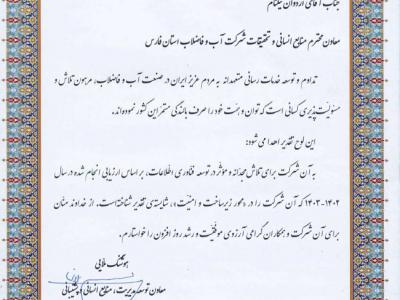 جناب آقای اردوان بیگلام
معاون محترم منابع انسانی و تحقیقات شرکت آب و فاضلاب استان فارس
تداوم و توسعه خدمات رسانی متعهدانه به مردم عزیز ایران در صنعت آب و فاضلاب، مرهون تلاش و
مسئولیت پذیری کسانی است که توان و همت خود را صرف بالندگی مستمر این کشور نموده‌اند.
این لوح تقدیر اهدا می شود:
به آن شرکت برای تلاش مجدانه و مؤثر در توسعه فناوری اطلاعات، بر اساس ارزیابی انجام شده در سال
۱۴۰۲-۱۴۰۳ که آن شرکت را در «محور زیرساخت و امنیت»، شایسته‌ی تقدیر شناخته است. از خداوند منان
برای آن شرکت و همکاران گرامی آرزوی موفقیت و رشد روز افزون را خواستارم.
هوشنگ ملایی
معاون توسعه مدیریت، منابع انسانی و پشتیبانی